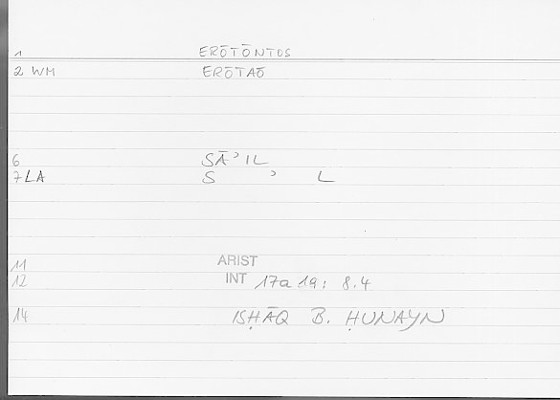 1 ERŌTŌNTOS
2 WM ERŌTAŌ
6 SĀʾIL
7 LA S ʾ L
11 ARIST
12 INT 17a19; 8.4
14 ISḤĀQ B. ḤUNAYN